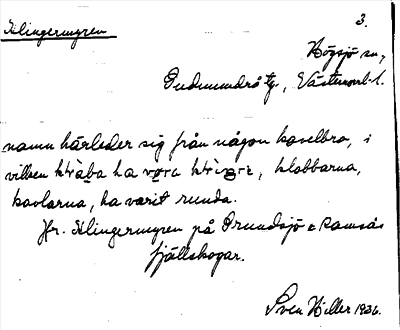 Klingermyren
3.
Högsjö sn,
Gudmundrå tg., Västernorrl.
namn härleder sig från någon kavelbro, i
vilken ha klobbarna,
kavlarna, ha varit runda.
Jfr. Klingermyren på Grundsjö o Ramsås
fjällskogar.
Sven Hiller 1936.